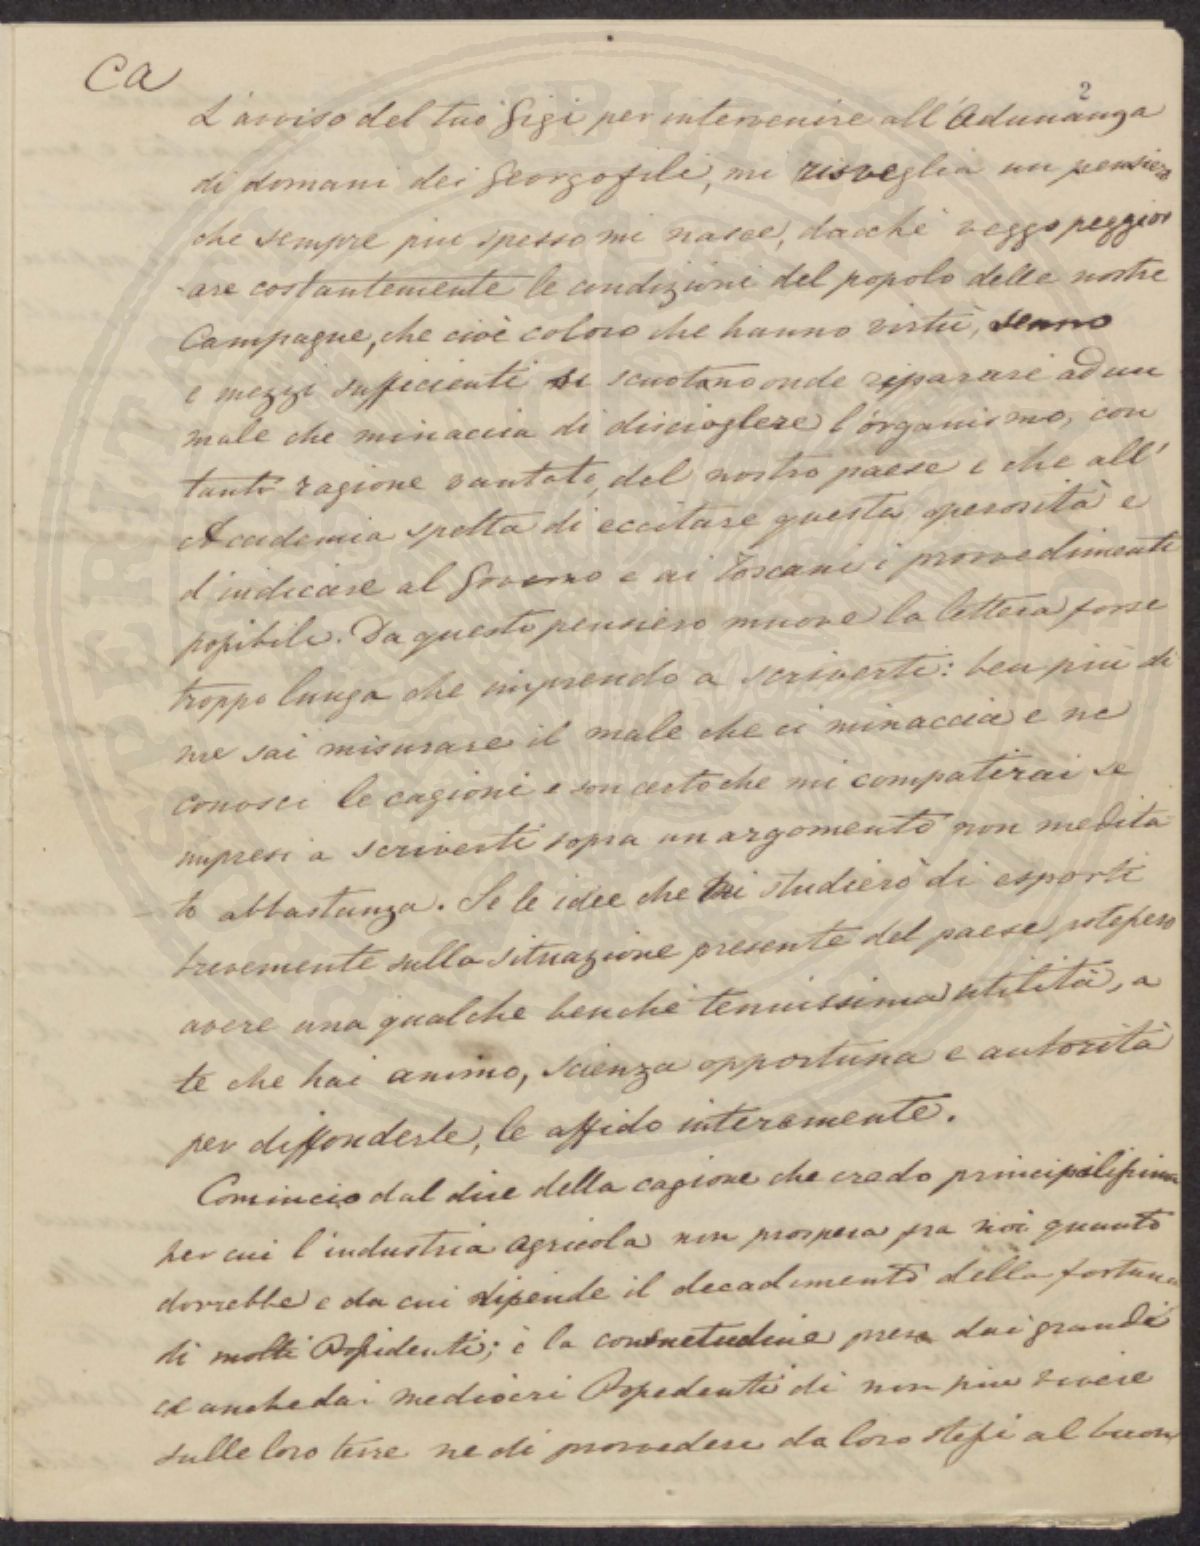 Ca
2
L'avviso del tuo Gigi per intervenire all'Adunanza
di domani dei Georgofili, mi risveglia un pensiero
che sempre piu spesso mi nasce, dacchè veggo peggior
are costantemente le condizioni del popolo delle nostre
Campagne, che cioè coloro che hanno virtù, senno
e mezzi sufficienti si scuotano onde riparare ad un
male che minaccia di disciogliere l'organismo, con
tanta ragione vantato, del nostro paese e che all'
Accademia spetta di eccitare questa operosità e
d'indicare al Governo e ai Toscani i provvedimenti
possibili. Da questo pensiero muove la lettera forse
troppo lunga che imprendo a scriverti: ben più di
me sai misurare il male che ci minaccia e ne
conosci le cagioni e son certo che mi compatirai se
impresi a scriverti sopra un argomento non medita
to abbastanza. Se le idee che studierò di esporti
brevemente sulla situazione presente del paese potessero
avere una qualche benchè tenuissima utilità, a
te che hai animo, scienza opportuna e autorità
per diffonderle, le affido interamente.
Comincio dal dire della cagione che credo principalissima
per cui l'industria agricola non prospera fra noi quanto
dovrebbe e da cui dipende il decadimento della fortuna
di molti Possidenti; è la consuetudine presa dai grandi
ed anche dai mediocri Possedenti di non piu vivere
sulle loro terre ne di provvedere da loro stessi al buon